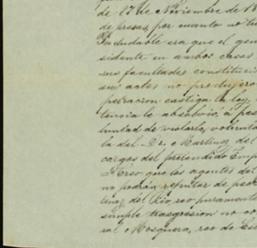 de 17 de Noviembre de 18
de presas, por cuanto no tu
Indudable era que el gen
sidente en ambos casos
sus facultades constituci
sus actos no produjero
petracion castiga la ley,
tencia le absolvió, á pes
luntad de violarla, volunta
la del Dr. Martinez del
cargos del pretendido Emp
Creo que los agentes del
no podrán reputar de
tinez del Rio, reo puramente
simple trasgresion no co
ral Mosquera, reo de